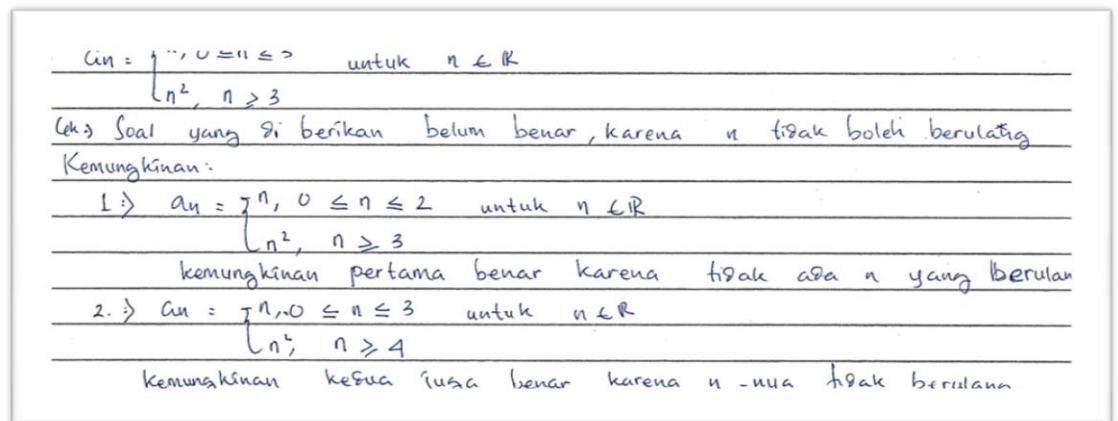 an = { n, 0 ≤ n ≤ 3 untuk n ∈ R
n², n ≥ 3
Cek => Soal yang di berikan belum benar, karena n tidak boleh berulang
Kemungkinan :
1 :) an = { n, 0 ≤ n ≤ 2 untuk n ∈ R
n², n ≥ 3
kemungkinan pertama benar karena tidak ada n yang berulan
2. :) an = { n, 0 ≤ n ≤ 3 untuk n ∈ R
n², n ≥ 4
kemungkinan kedua juga benar karena n -nya tidak berulang